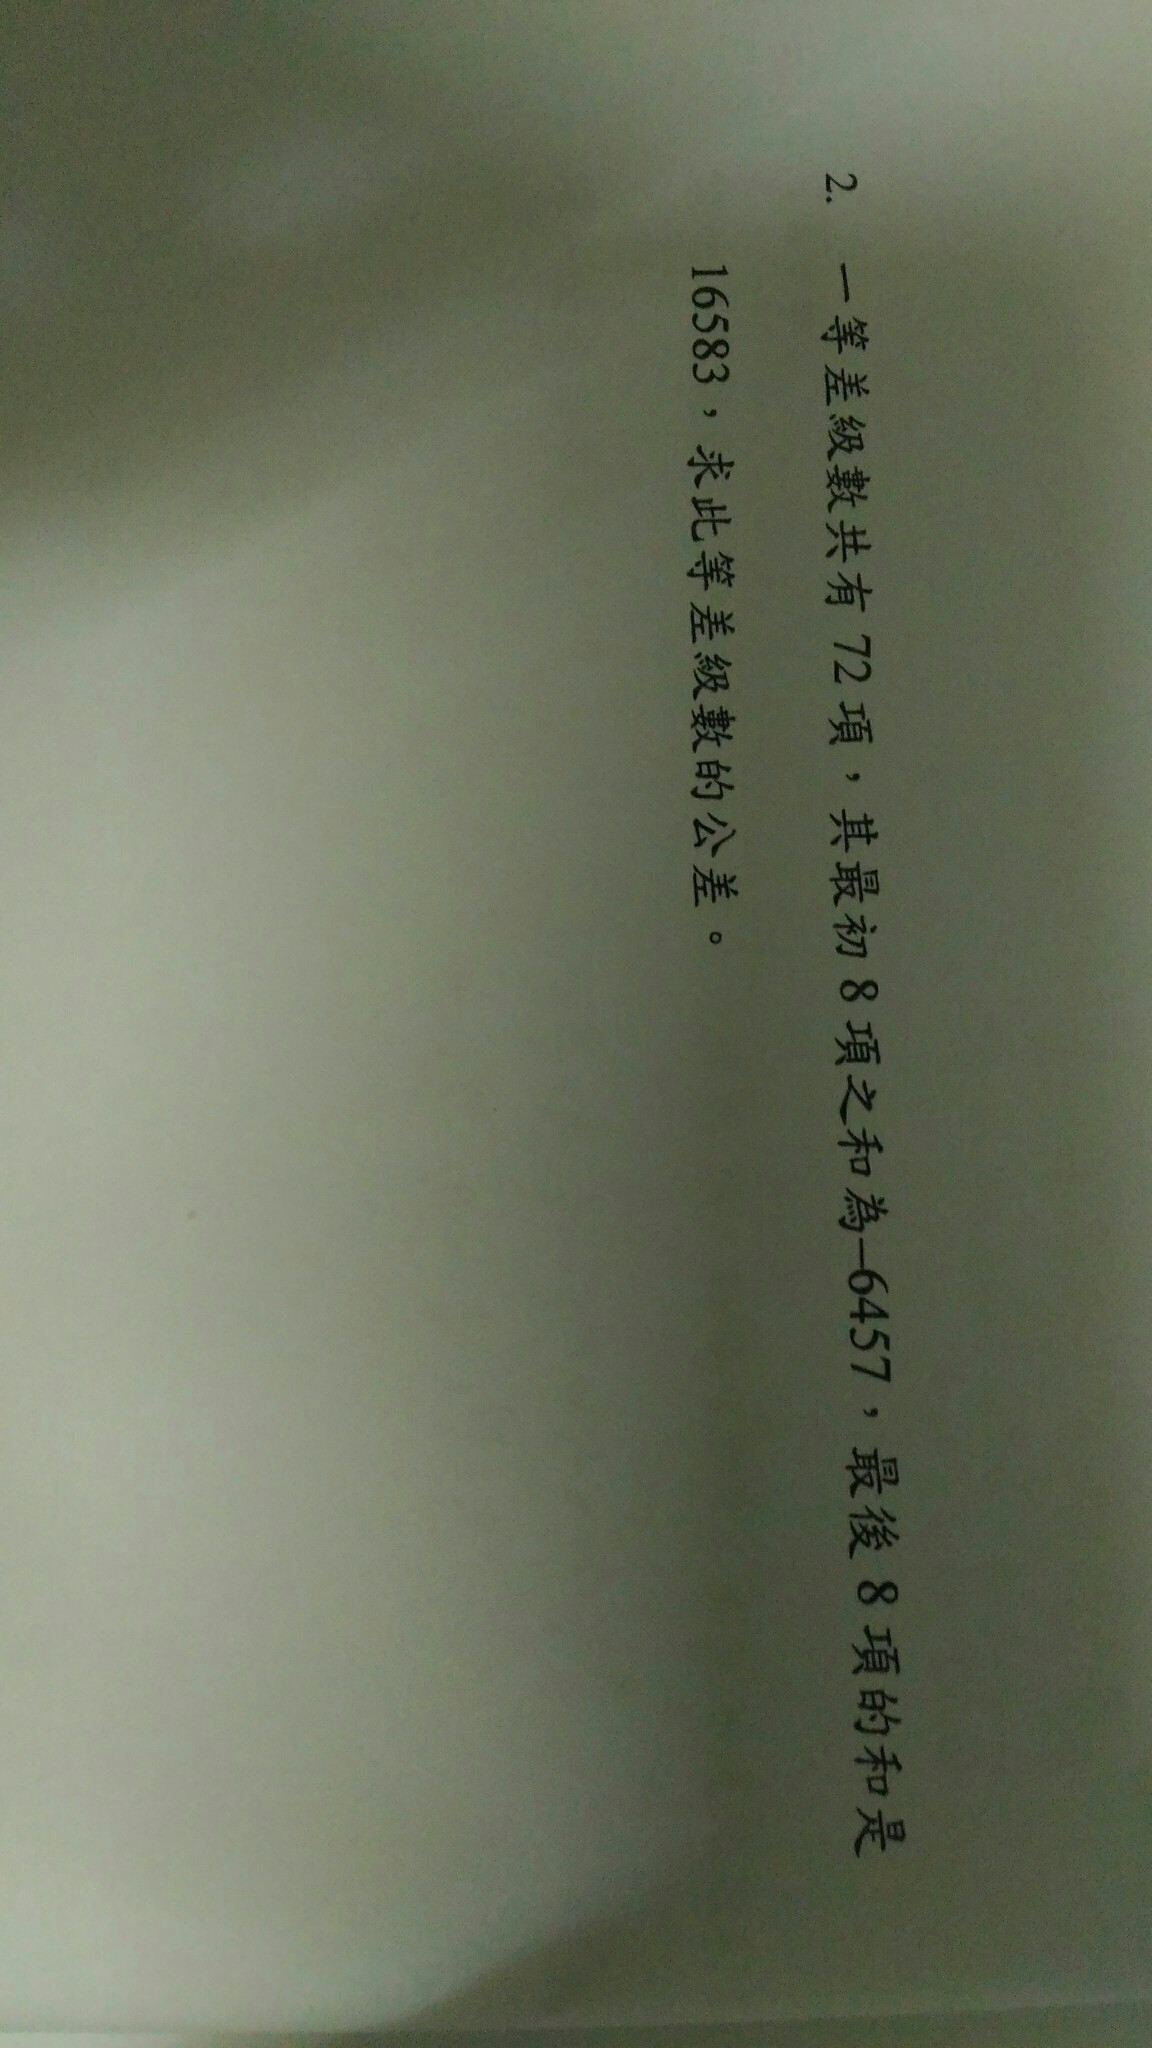 2. 一等差級數共有 72 項，其最初 8 項之和為–6457，最後 8 項的和是
16583，求此等差級數的公差。